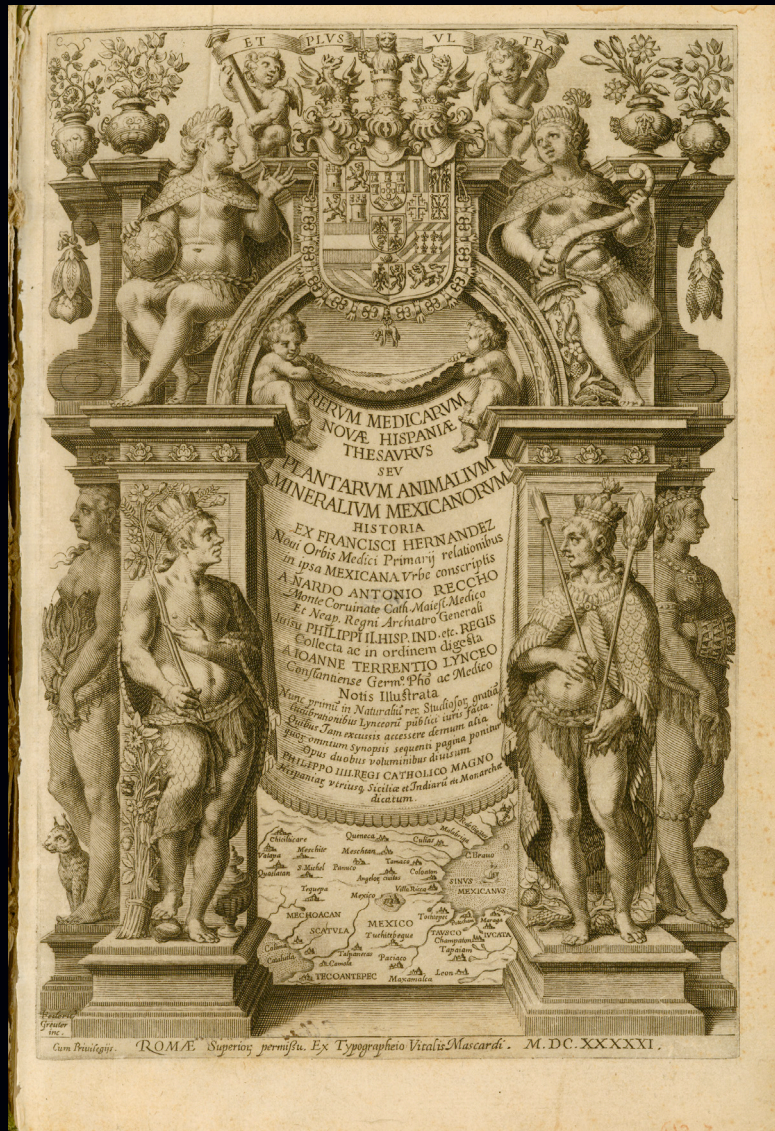 ET PLVS VLTRA
RERVM MEDICARVM
NOVÆ HISPANIÆ
THESAVRVS
SEV
PLANTARVM ANIMALIVM
MINERALIVM MEXICANORVM
HISTORIA
EX FRANCISCI HERNANDEZ
Noui Orbis Medici Primarij relationibus
in ipsa MEXICANA Vrbe conscriptis
A NARDO ANTONIO RECCHO
Monte Coruinate Cath. Maiest. Medico
Et Neap. Regni Archiatro Generali
Iussu PHILIPPI II. HISP. IND. etc. REGIS
Collecta ac in ordinem digesta
A IOANNE TERRENTIO LYNCEO
Constantiense Germ.º Phõ ac Medico
Notis Illustrata
Nunc primũ in Naturaliũ rer. Studiosor. gratiã
lucubrationibus Lynceorũ publici iuris facta.
Quibus Jam excusis accessere demum alia
quor. omnium Synopsis sequenti pagina ponitur
Opus duobus voluminibus diuisum
PHILIPPO IIII. REGI CATHOLICO MAGNO
Hispaniar. vtriusq. Siciliæ et Indiarũ etc. Monarchæ
dicatum.
Chicilucare
Queneca
Culias
Vatapa
Meschite
Meschtan
C. Brauo
Quaulatan
S. Michel
Panuco
Tamaca
Colpatan
Angelor. ciuitas
SINVS
MEXICANVS
Tequepa
Mexico
Villa Ricca
MECHOACAN
SCATVLA
MEXICO
Tuchitepeque
TAVSCO
IVCATA
Champaton
Colima
Tapaiam
Paciaco
TECOANTEPEC
Maxamalca
Leon
Greuter
inc.
Cum Priuilegijs. ROMÆ Superior. permissu. Ex Typographeio Vitalis Mascardi. M.DC.XXXXXI.